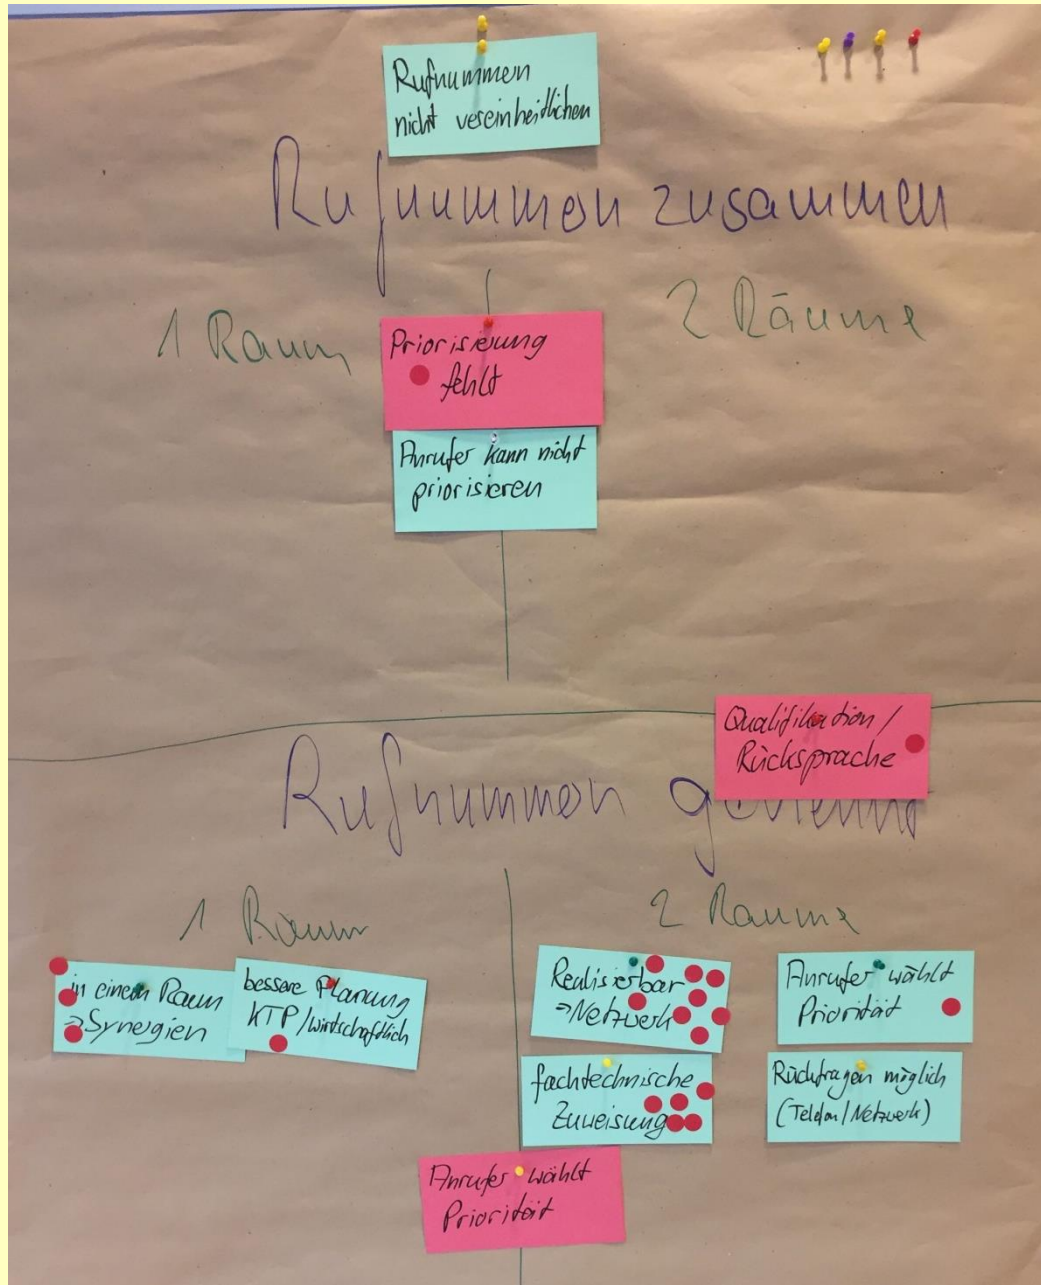 Rufnummern
nicht vereinheitlichen
Rufnummern zusammen
1 Raum
2 Räume
Priorisierung
fehlt
Anrufer kann nicht
priorisieren
Qualifikation/
Rücksprache
Rufnummern getrennt
1 Raum
2 Räume
in einem Raum
→Synergien
bessere Planung
KTP/wirtschaftlich
Realisierbar
→Netzwerk
Anrufer wählt
Priorität
fachtechnische
Zuweisung
Rückfragen möglich
(Telefon/Netzwerk)
Anrufer wählt
Priorität